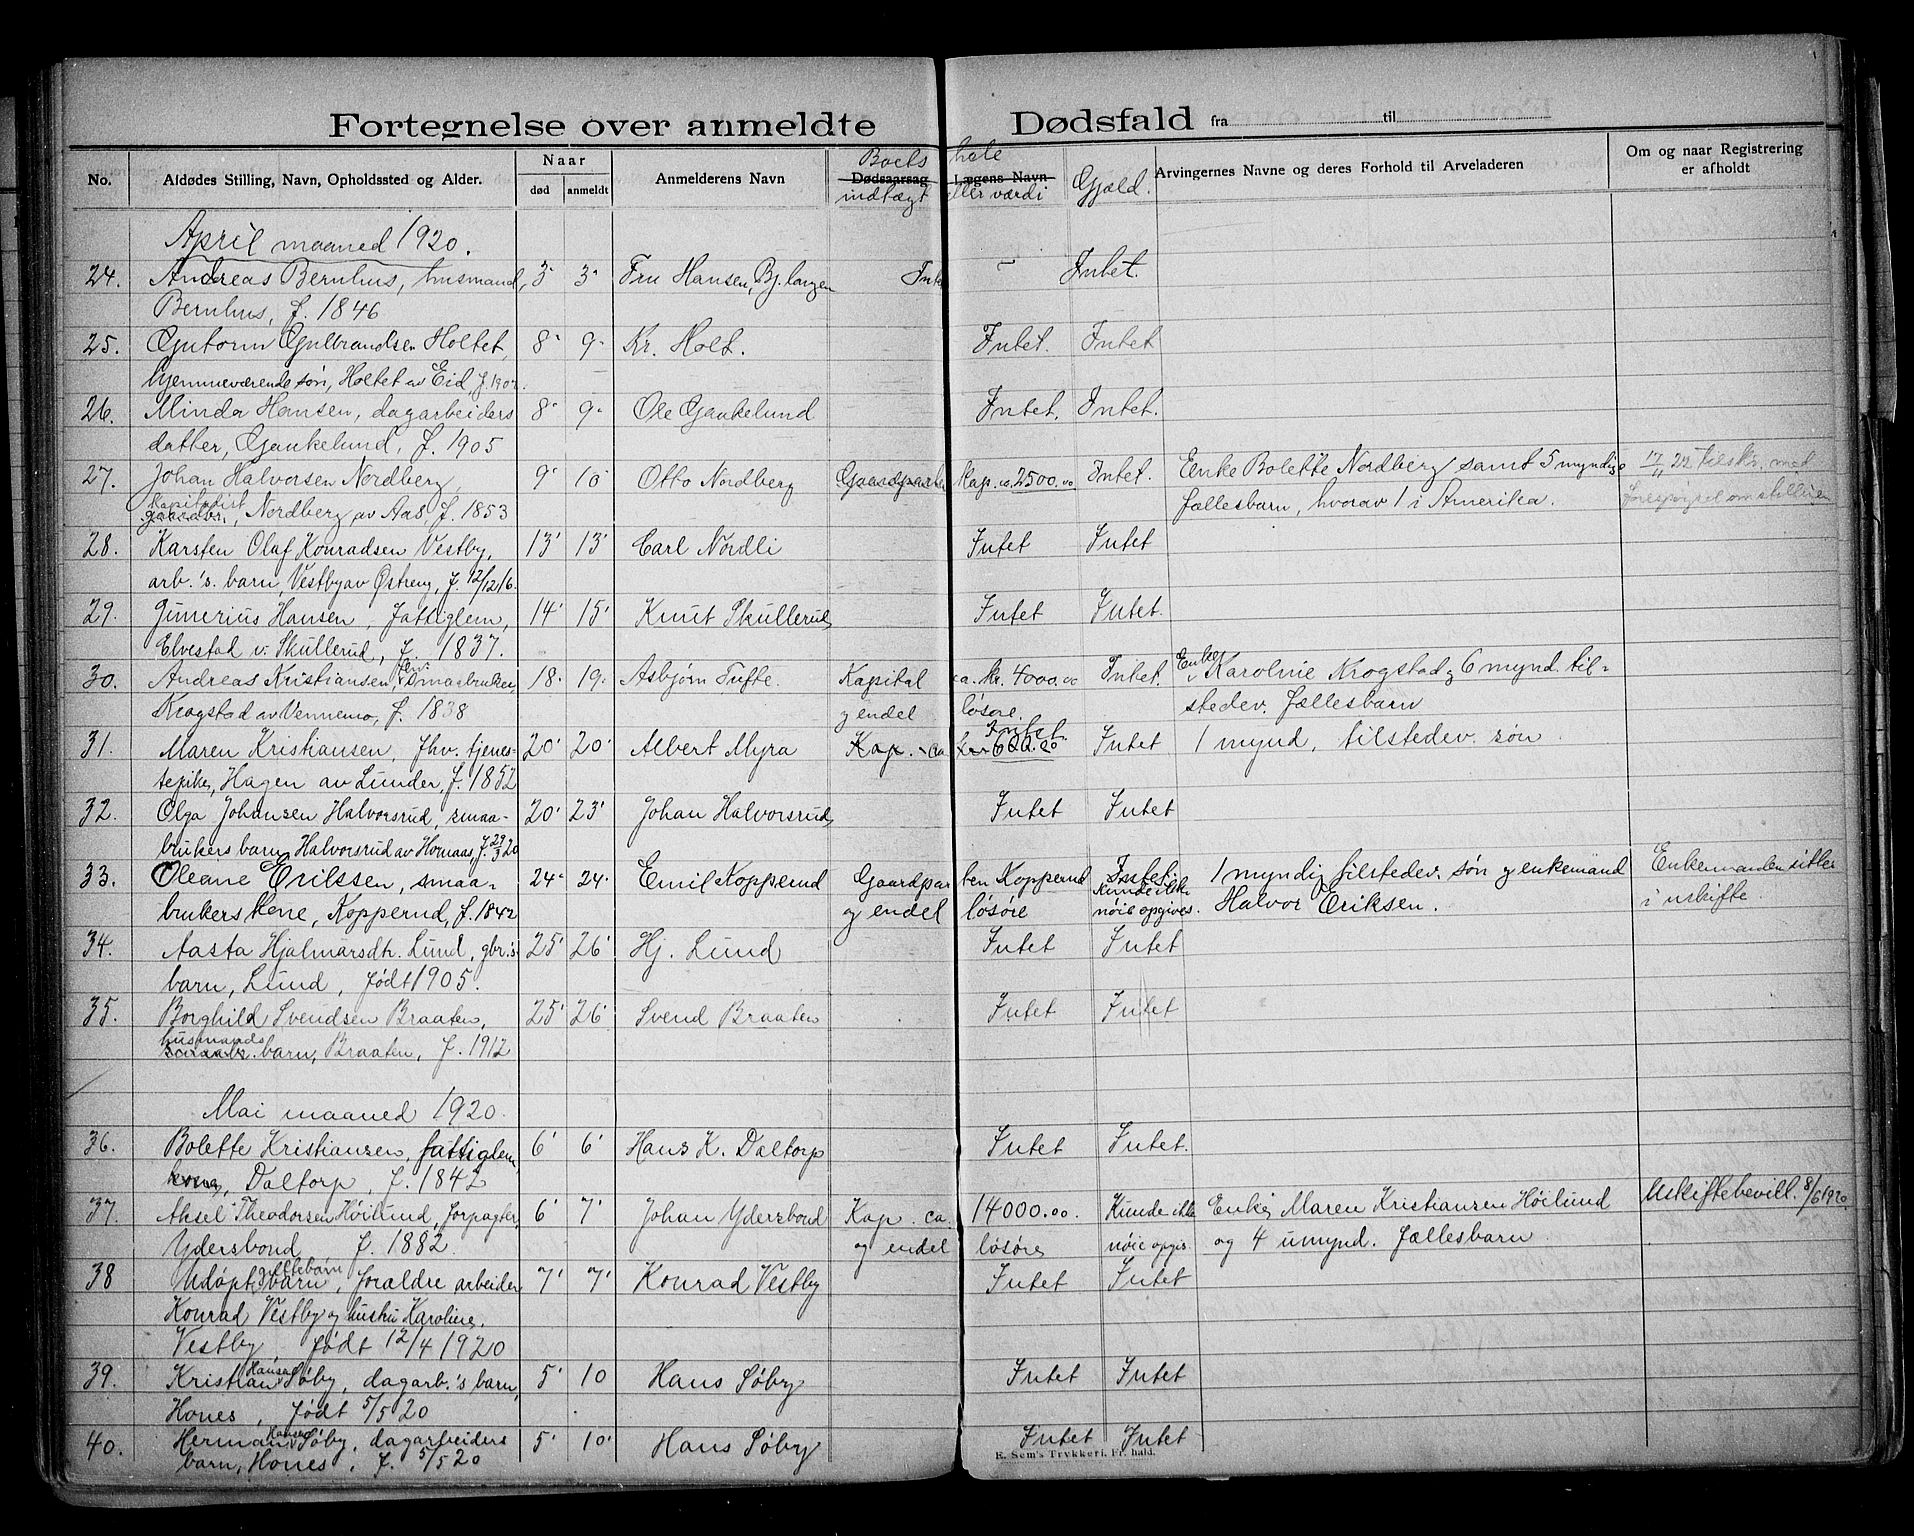 Fortegnelse over anmeldte Dødsfald fra til
No. Aldødes Stilling, Navn, Opholdssted og Alder. Naar død anmeldt Anmelderens Navn Dødsaarsag Lægens Navn Arvingernes Navne og deres Forhold til Arveladeren Om og naar Registrering er afholdt
Boets hele
indtægt eller værdi Gjæld.
April maaned 1920.
24. Andreas Bernhus, husmand, 3 3 Fru Hansen, Bj. Intet.
Bernhus, f. 1846
25. Gutorm Gulbrandsen Holtet, 8 9 Kr. Holt. Intet. Intet
hjemmeværende søn, Holtet av Eid f.
26. Minda Hansen, dagarbeiders 8 9 Ole Gaukelund Intet. Intet.
datter, Gaukelund, f. 1905
27. Johan Halvorsen Nordberg 9 10 Otto Nordberg Kap. ca. 2500.00 Intet. Enke Bolette Nordberg samt 5 myndige 17/11 22 tilskr. med
Kapitalist, Nordberg av Aas, f. 1853 fællesbarn, hvorav 1 i Amerika. forespørsel om stillingen
28. Karsten Olaf Konradsen Vestby, 13 13 Carl Nordli Intet Intet
arb.'s. barn, Vestby av Østreng, f. 12/12 16.
29. Gunerius Hansen, fattiglem, 14 15 Knut Skullerud Intet Intet.
Elvestad v. Skullerud, f. 1837.
30. Andreas Kristiansen, smaabruker, 18 19 Asbjørn Tufte. Kapital ca. kr. 4000.00 Intet. Enke Karoline Krogstad og 6 mynd. til-
Krogstad av Vennemo, f. 1838 og endel løsøre. stedev. fællesbarn
31. Maren Kristiansen, fhv. tjenes- 20 20 Albert Myra Kap. ca kr 600.00 Intet Intet 1 mynd, tilstedev. søn.
tepike, Hagen av Lunder, f. 1852
32. Olga Johansen Halvorsrud, smaa- 20 23 Johan Halvorsrud Intet Intet
brukers barn, Halvorsrud av Homaas, f. 29/3 20
33. Oleane Erikssen, smaa- 24 24 Emil Kopperud Gaardparten Kopperud Intet; 1 myndig tilstedev. søn og enkemand Enkemanden sitter
brukers kone, Kopperud, f. 1842 og endel løsøre Kunde ikke nøie opgives. Halvor Eriksen. i uskifte.
34. Aasta Hjalmarsdtr. Lund, gbr.'s 25 26 Hj. Lund Intet Intet
barn, Lund, født 1905.
35. Borghild Svendsen Braaten, 25 26 Svend Braaten Intet Intet
husmands barn, Braaten, f. 1912
Mai maaned 1920.
36. Bolette Kristiansen, fattiglem, 6 6 Hans K. Daltorp Intet Intet.
Daltorp, f. 1842
37. Aksel Theodorsen Høilund, forpagter, 6 7 Johan Ydersbond Kap. ca. 14000.00. Kunde ikke Enke, Maren Kristiansen Høilund Uskiftebevill. 8/6 1920
Ydersbond, f. 1882. og endel løsøre nøie opgis. og 4 umynd. fællesbarn.
38 Udøpt guttebarn, foraldre arbeider 7 7 Konrad Vestby Intet Intet
Konrad Vestby og hustru Karoline
Vestby, født 12/4 1920
39. Kristian Hansen Søby, dagarb.'s barn, 5 10 Hans Søby Intet Intet
Hones, født 5/5 20
40. Herman Hansen Søby, dagarbeiders 5 10 Hans Søby Intet Intet
barn, Hones, f. 5/5 20
E. Sem's Trykkeri, Fr. hald.